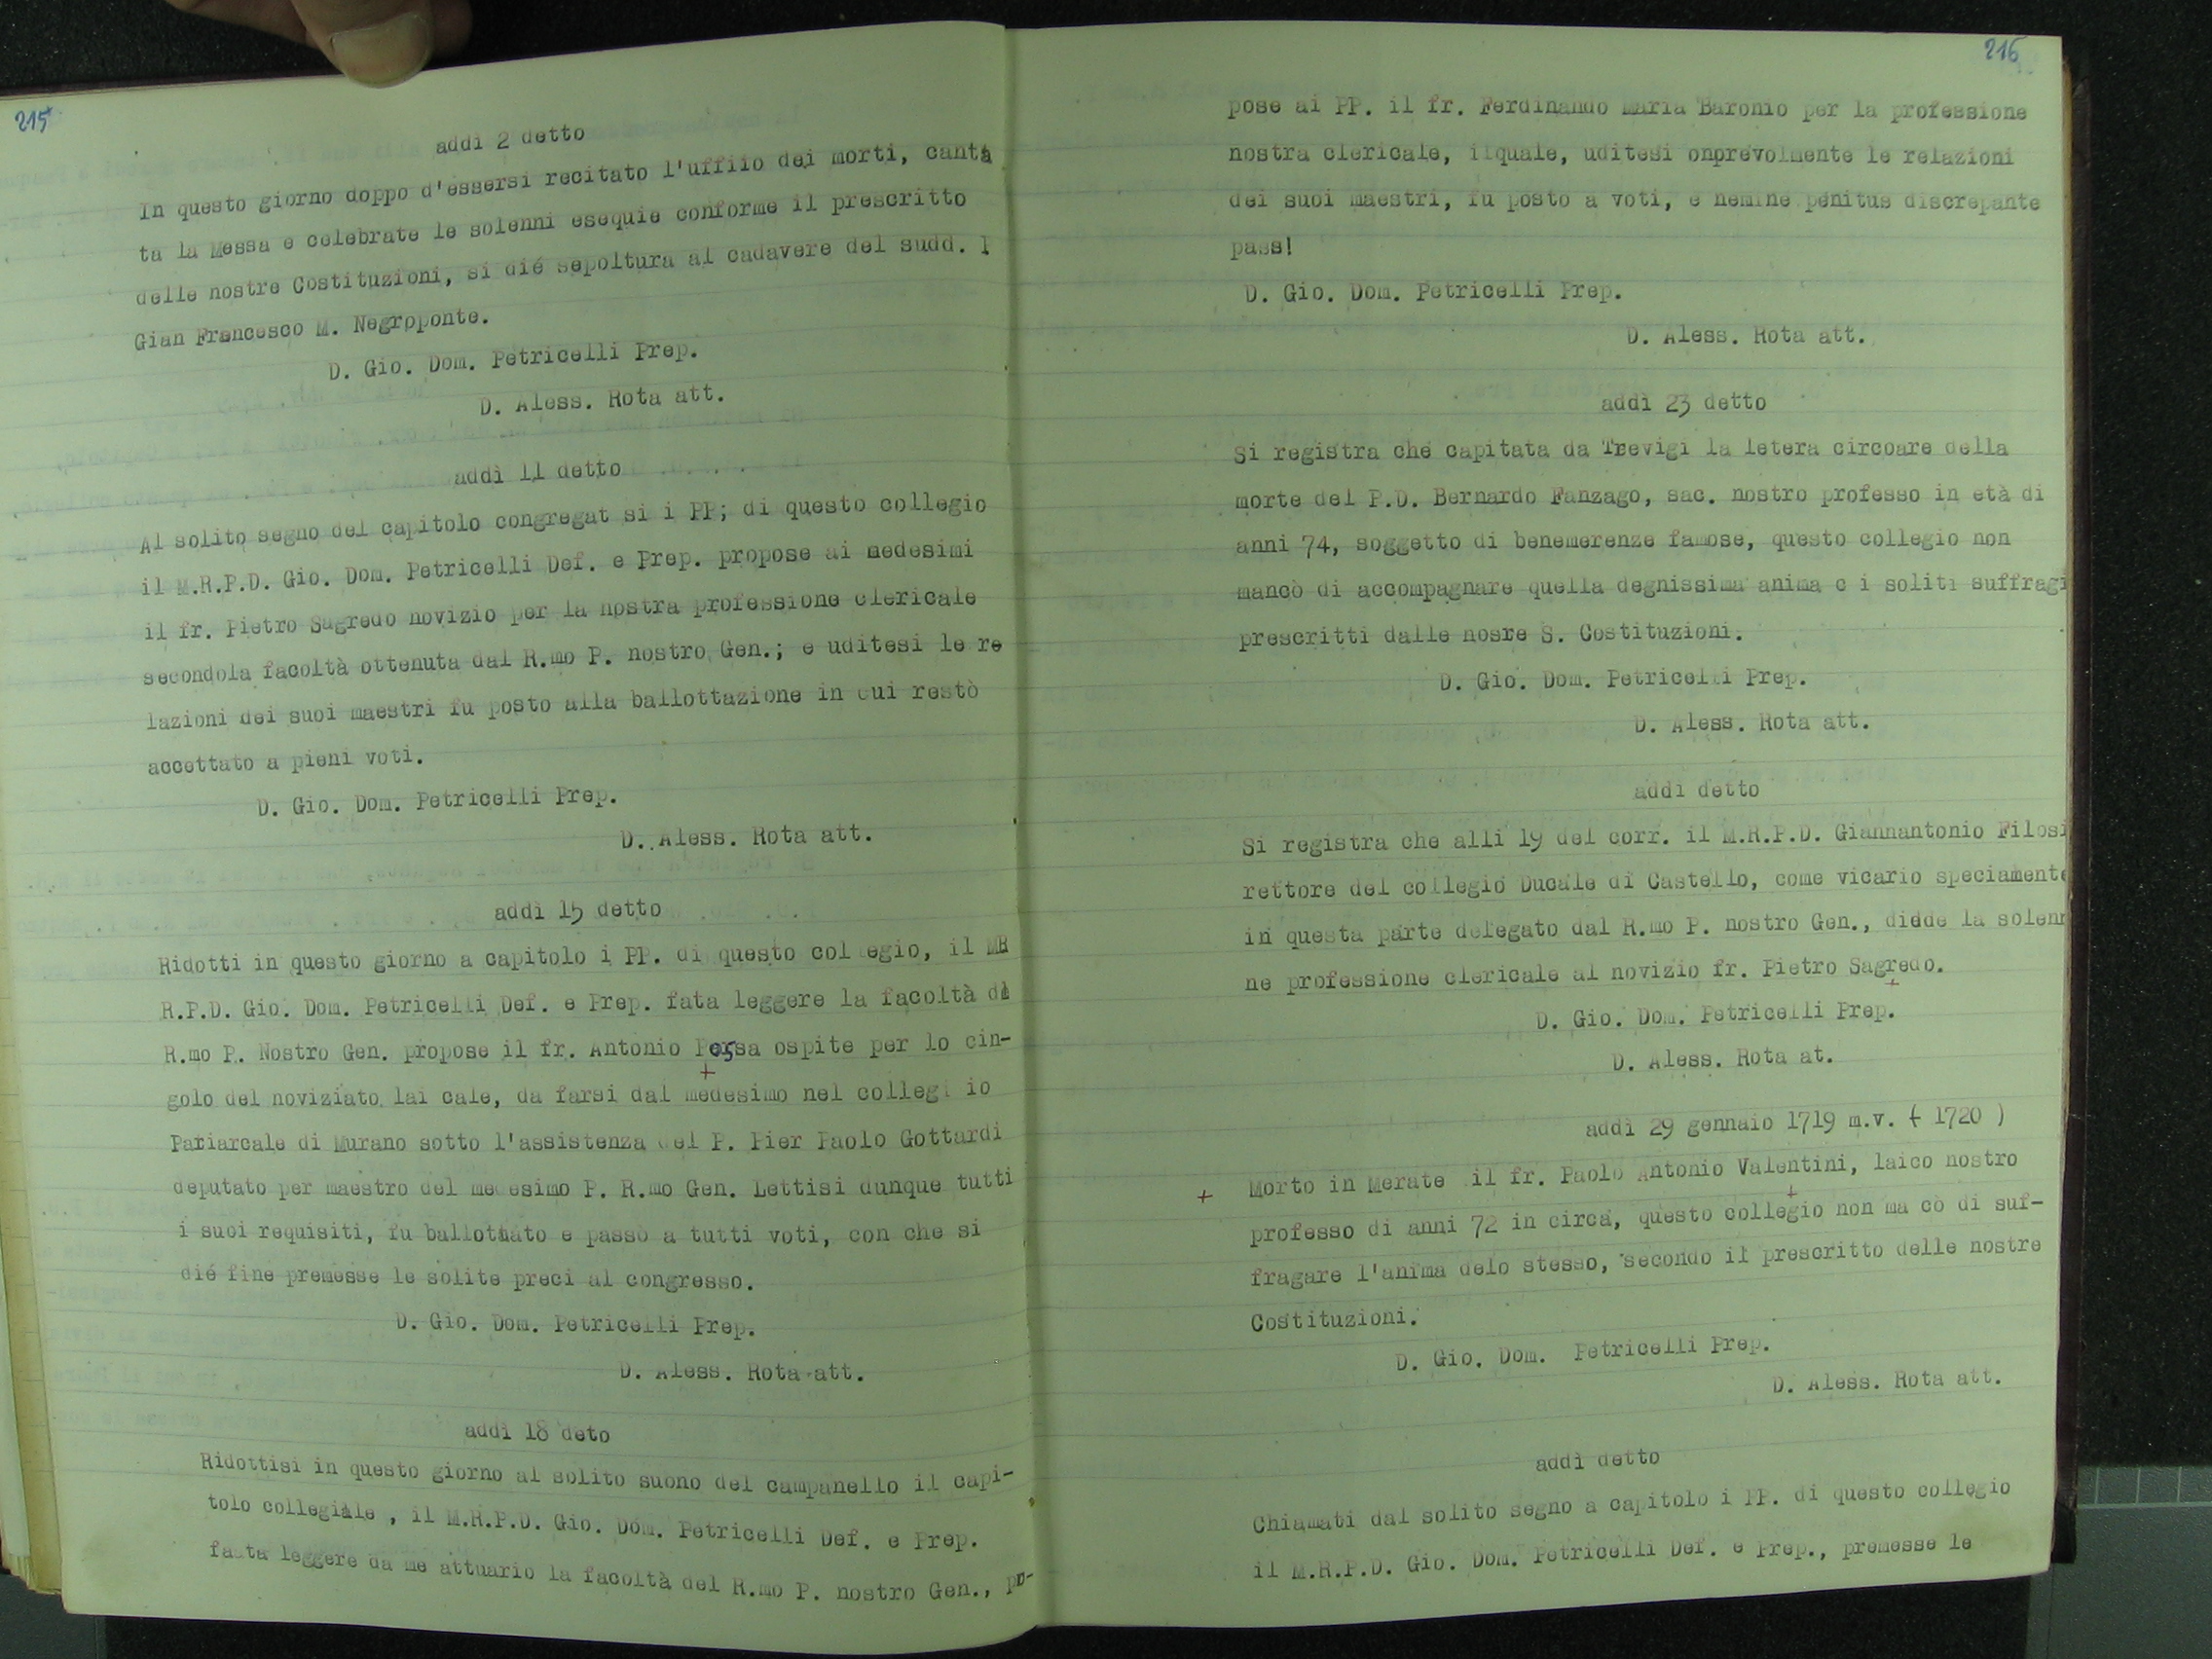 215
addì 2 detto
In questo giorno doppo d'essersi recitato l'uffiio dei morti, canta
ta la Messa e celebrate le solenni esequie conforme il prescritto
delle nostre Costituzioni, si dié sepoltura al cadavere del sudd.
Gian Francesco M. Negroponte.
D. Gio. Dom. Petricelli Prep.
D. Aless. Rota att.
addì 11 detto
Al solito segno del capitolo congregat si i PP; di questo collegio
il M.R.P.D. Gio. Dom. Petricelli Def. e Prep. propose ai medesimi
il fr. Pietro Sagredo novizio per la nostra professione clericale
secondola facoltà ottenuta dal R.mo P. nostro Gen.; e uditesi le re
lazioni dei suoi maestri fu posto alla ballottazione in cui restò
accettato a pieni voti.
D. Gio. Dom. Petricelli Prep.
D. Aless. Rota att.
addì 15 detto
Ridotti in questo giorno a capitolo i PP. di questo collegio, il MR
R.P.D. Gio. Dom. Petricelli Def. e Prep. fata leggere la facoltà di
R.mo P. Nostro Gen. propose il fr. Antonio ospite per lo cin-
golo del noviziato lai cale, da farsi dal medesimo nel collegi io
Pariarcale di Murano sotto l'assistenza del P. Pier Paolo Gottardi
deputato per maestro del medesimo P. R.mo Gen. Lettisi dunque tutti
i suoi requisiti, fu ballottato e passò a tutti voti, con che si
dié fine premesse le solite preci al congresso.
D. Gio. Dom. Petricelli Prep.
D. Aless. Rota att.
addì 18 deto
Ridottisi in questo giorno al solito suono del campanello il capi-
tolo collegiale , il M.R.P.D. Gio. Dom. Petricelli Def. e Prep.
fatta leggere da me attuario la facoltà del R.mo P. nostro Gen., pro-
216
pose ai PP. il fr. Ferdinando Maria Baronio per la professione
nostra clericale, ilquale, uditesi onprevolmente le relazioni
dei suoi maestri, fu posto a voti, e nemine penitus discrepante
pass!
D. Gio. Dom. Petricelli Prep.
D. Aless. Rota att.
addì 23 detto
Si registra che capitata da Trevigi la letera circoare della
morte del P.D. Bernardo Fanzago, sac. nostro professo in età di
anni 74, soggetto di benemerenze famose, questo collegio non
mancò di accompagnare quella degnissima anima c i soliti suffragi
prescritti dalle nosre S. Costituzioni.
D. Gio. Dom. Petricelli Prep.
D. Aless. Rota att.
addì detto
Si registra che alli 19 del corr. il M.R.P.D. Giannantonio Filosi
rettore del collegio Ducale di Castello, come vicario speciamente
in questa parte delegato dal R.mo P. nostro Gen., diede la solenn
ne professione clericale al novizio fr. Pietro Sagredo.
+
D. Gio. Dom. Petricelli Prep.
D. Aless. Rota at.
addì 29 gennaio 1719 m.v. ( 1720 )
+ Morto in Merate il fr. Paolo Antonio Valentini, laico nostro
professo di anni 72 in circa, questo collegio non ma cò di suf-
fragare l'anima delo stesso, secondo il prescritto delle nostre
Costituzioni.
D. Gio. Dom. Petricelli Prep.
D. Aless. Rota att.
addì detto
Chiamati dal solito segno a capitolo i PP. di questo collegio
il M.R.P.D. Gio. Dom. Petricelli Def. e Prep., premesse le